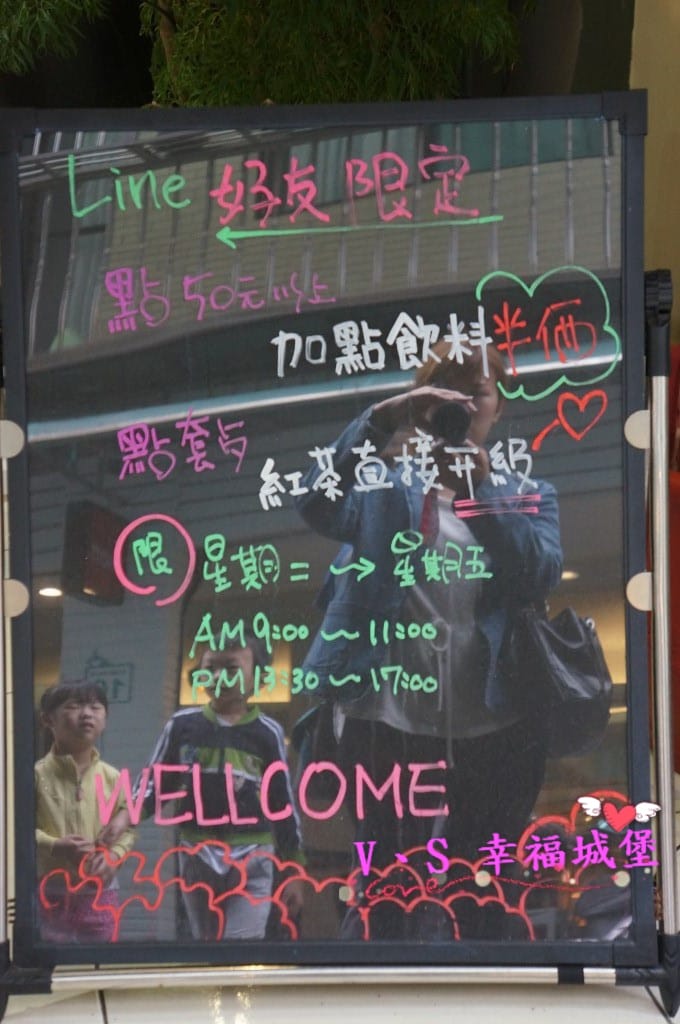 Line 好友限定
點50元以上
加點飲料半価
點套歺
紅茶直接升級
限 星期二 → 星期五
AM 9:00～11:00
PM 13:30～17:00
WELLCOME
V、S 幸福城堡